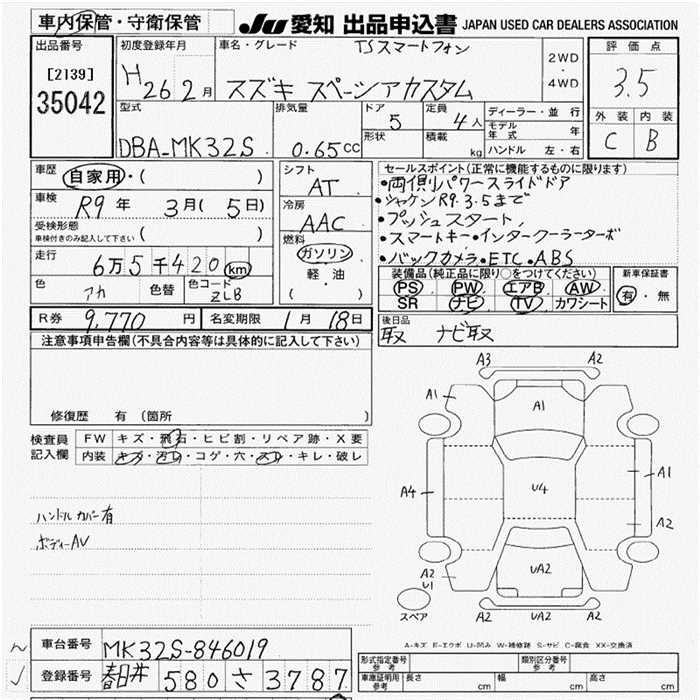 車内保管・守衛保管
JU 愛知 出品申込書 JAPAN USED CAR DEALERS ASSOCIATION
出品番号 [2139] 35042
初度登録年月 H 26 2月
車名・グレード TSスマートフォン
スズキ スペーシアカスタム
2WD・4WD
評価点 3.5
外装 C 内装 B
型式 DBA-MK32S
排気量 0.65cc
ドア 5
形状
定員 4人
積載 kg
ディーラー・並行
モデル年式 年
ハンドル 左・右
車歴 自家用・( )
車検 R9年 3月( 5日)
受検形態 車検付きのみ記入して下さい ( )
走行 6万5千420km
色 アカ 色替 色コード ZLB
シフト AT
冷房 AAC
燃料 ガソリン
軽・油
( )
セールスポイント(正常に機能するものに限ります)
・両側パワースライドドア
・シャケンR9.3.5まで
・プッシュスタート
・スマートキー・インタークーラーターボ
・バックカメラ・ETC・ABS
装備品(純正品に限り○をつけてください)
PS PW エアB AW
SR ナビ TV カワシート
新車保証書
有・無
R券 9,770円 名変期限 1月18日
後日品
取 ナビ取
注意事項申告欄(不具合内容等は具体的に記入して下さい)
修復歴 有(箇所 )
検査員記入欄
FW キズ・飛石・ヒビ割・リペア跡・X要
内装 キズ・汚レ・コゲ・穴・スレ・キレ・破レ
ハンドルカバー有
ボディーAV
A3 A2
A1 A1
A4 U4 A1
A2
A2 U1 UA2
スペア
A2 UA2 A2
A-キズ E-エクボ U-凹み W-補修跡 S-サビ C-腐食 XX-交換済
車台番号 MK32S-846019
登録番号 春日井 580 さ 3787
形式指定番号 参考 類別区分番号 参考
車庫証明用 参考 長さ cm 幅 cm 高さ cm